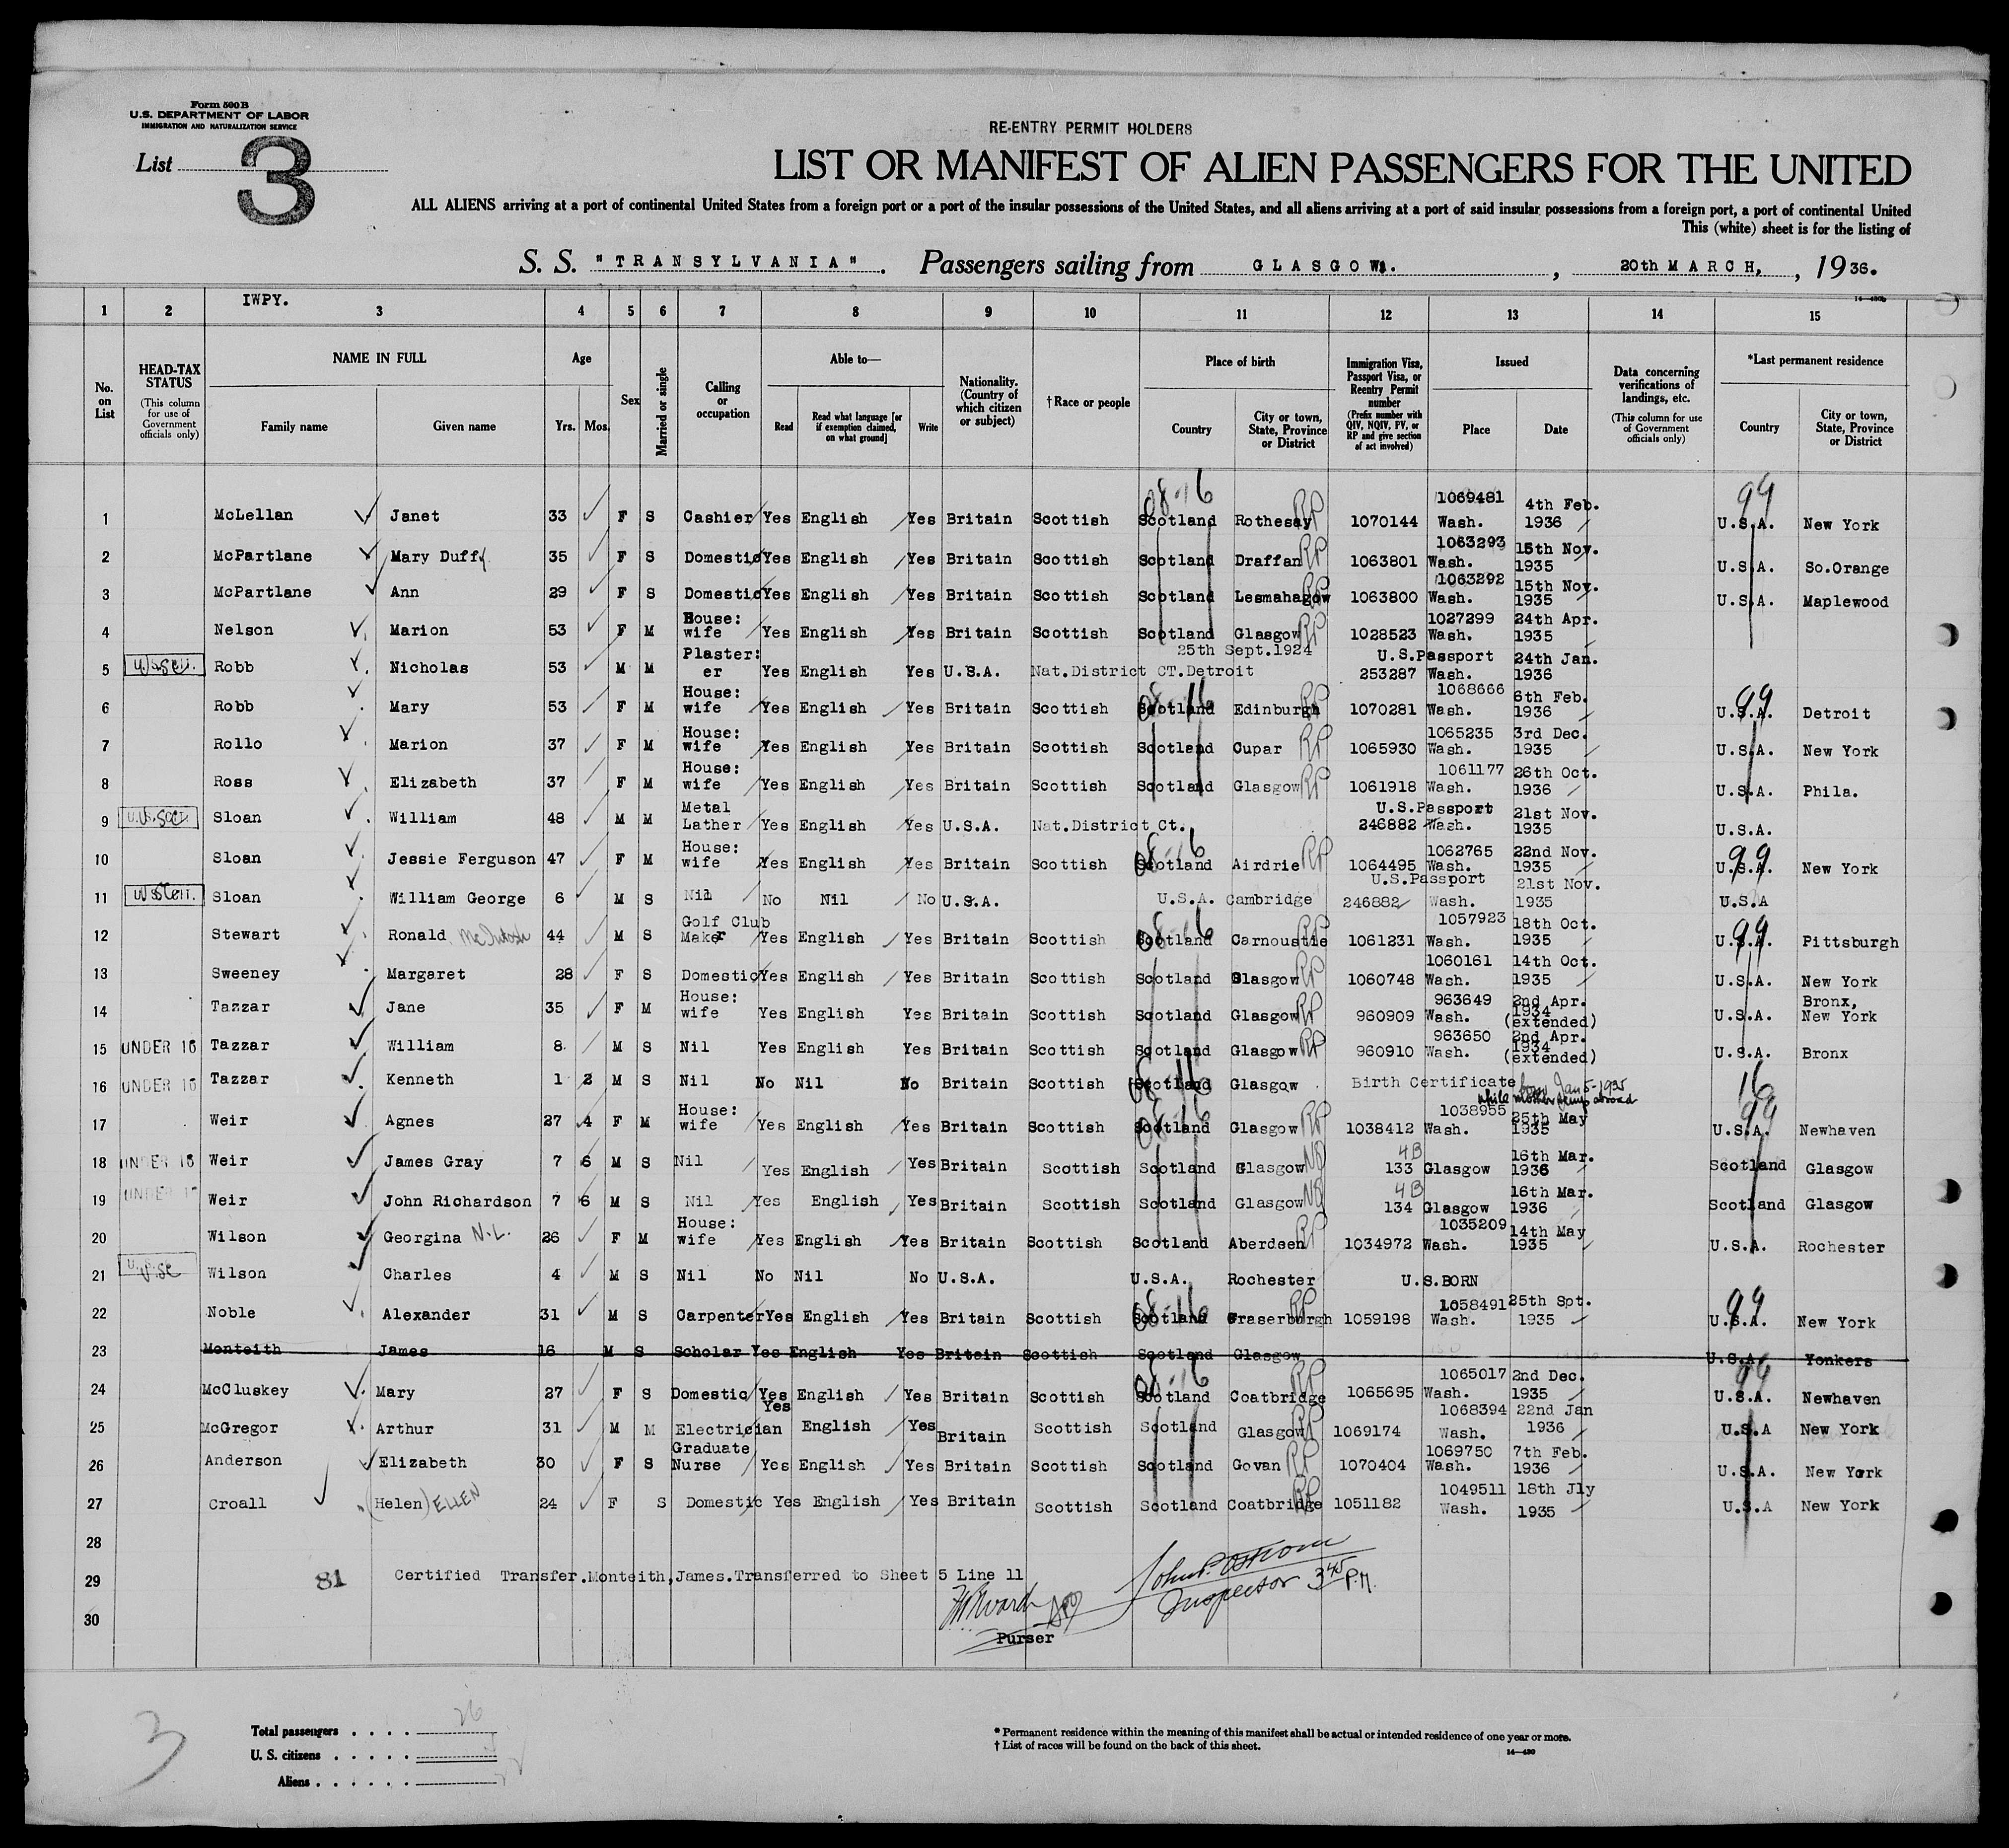 Form 500B
U.S. DEPARTMENT OF LABOR
IMMIGRATION AND NATURALIZATION SERVICE
List 3
RE-ENTRY PERMIT HOLDERS
LIST OR MANIFEST OF ALIEN PASSENGERS FOR THE UNITED
ALL ALIENS arriving at a port of continental United States from a foreign port or a port of the insular possessions of the United States, and all aliens arriving at a port of said insular possessions from a foreign port, a port of continental United
This (white) sheet is for the listing of
S. S. "TRANSYLVANIA". Passengers sailing from GLASGOW. , 20th MARCH, , 1936.
14—430b
IWPY.
1 2 3 4 5 6 7 8 9 10 11 12 13 14 15
No. on List
HEAD-TAX STATUS (This column for use of Government officials only)
NAME IN FULL Family name Given name
Age Yrs. Mos.
Sex
Married or single
Calling or occupation
Able to— Read Read what language [or if exemption claimed, on what ground] Write
Nationality. (Country of which citizen or subject)
†Race or people
Place of birth Country City or town, State, Province or District
Immigration Visa, Passport Visa, or Reentry Permit number (Prefix number with QIV, NQIV, PV, or RP and give section of act involved)
Issued Place Date
Data concerning verifications of landings, etc. (This column for use of Government officials only)
*Last permanent residence Country City or town, State, Province or District
1 McLellan Janet 33 F S Cashier Yes English Yes Britain Scottish 08-16 Scotland Rothesay RP 1070144 1069481 Wash. 4th Feb. 1936 99 U.S.A. New York
2 McPartlane Mary Duffy 35 F S Domestic Yes English Yes Britain Scottish Scotland Draffan RP 1063801 1063293 Wash. 15th Nov. 1935 U.S.A. So.Orange
3 McPartlane Ann 29 F S Domestic Yes English Yes Britain Scottish Scotland Lesmahagow RP 1063800 1063292 Wash. 15th Nov. 1935 U.S.A. Maplewood
4 Nelson Marion 53 F M House: wife Yes English Yes Britain Scottish Scotland Glasgow RP 1028523 1027299 Wash. 24th Apr. 1935
5 Robb Nicholas 53 M M Plaster: er Yes English Yes U.S.A. Nat.District CT.Detroit 25th Sept.1924 U.S.Passport 253287 Wash. 24th Jan. 1936
6 Robb Mary 53 F M House: wife Yes English Yes Britain Scottish 08-16 Scotland Edinburgh 1070281 1068666 Wash. 6th Feb. 1936 99 U.S.A. Detroit
7 Rollo Marion 37 F M House: wife Yes English Yes Britain Scottish Scotland Cupar RP 1065930 1065235 Wash. 3rd Dec. 1935 U.S.A. New York
8 Ross Elizabeth 37 F M House: wife Yes English Yes Britain Scottish Scotland Glasgow RP 1061918 1061177 Wash. 26th Oct. 1936 U.S.A. Phila.
9 Sloan William 48 M M Metal Lather Yes English Yes U.S.A. Nat.District Ct. U.S.Passport 246882 Wash. 21st Nov. 1935 U.S.A.
10 Sloan Jessie Ferguson 47 F M House: wife Yes English Yes Britain Scottish 08-16 Scotland Airdrie RP 1064495 1062765 Wash. 22nd Nov. 1935 99 U.S.A. New York
11 Sloan William George 6 M S Nil No Nil No U.S.A. U.S.A. Cambridge U.S.Passport 246882 Wash. 21st Nov. 1935 U.S.A
12 Stewart Ronald McIntosh 44 M S Golf Club Maker Yes English Yes Britain Scottish 08-16 Scotland Carnoustie 1061231 1057923 Wash. 18th Oct. 1935 99 U.S.A. Pittsburgh
13 Sweeney Margaret 28 F S Domestic Yes English Yes Britain Scottish Scotland Glasgow RP 1060748 1060161 Wash. 14th Oct. 1935 U.S.A. New York
14 Tazzar Jane 35 F M House: wife Yes English Yes Britain Scottish Scotland Glasgow RP 960909 963649 Wash. 2nd Apr. 1934 (extended) U.S.A. Bronx, New York
15 UNDER 16 Tazzar William 8 M S Nil Yes English Yes Britain Scottish Scotland Glasgow RP 960910 963650 Wash. 2nd Apr. 1934 (extended) U.S.A. Bronx
16 UNDER 16 Tazzar Kenneth 1 2 M S Nil No Nil No Britain Scottish 08-16 Scotland Glasgow Birth Certificate born Jan 5-1935 while mother temp abroad 16
17 Weir Agnes 27 4 F M House: wife Yes English Yes Britain Scottish 08-16 Scotland Glasgow RP 1038412 1038955 Wash. 25th May 1935 99 U.S.A. Newhaven
18 UNDER 16 Weir James Gray 7 6 M S Nil Yes English Yes Britain Scottish Scotland Glasgow 4B 133 Glasgow 16th Mar. 1936 Scotland Glasgow
19 UNDER Weir John Richardson 7 6 M S Nil Yes English Yes Britain Scottish Scotland Glasgow 4B 134 Glasgow 16th Mar. 1936 Scotland Glasgow
20 Wilson Georgina N.L. 26 F M House: wife Yes English Yes Britain Scottish Scotland Aberdeen RP 1034972 1035209 Wash. 14th May 1935 U.S.A. Rochester
21 Wilson Charles 4 M S Nil No Nil No U.S.A. U.S.A. Rochester U.S.BORN
22 Noble Alexander 31 M S Carpenter Yes English Yes Britain Scottish 08-16 Scotland Fraserburgh RP 1059198 1058491 Wash. 25th Spt. 1935 99 U.S.A. New York
23 Monteith James 16 M S Scholar Yes English Yes Britain Scottish Scotland Glasgow U.S.A. Yonkers
24 McCluskey Mary 27 F S Domestic Yes English Yes Britain Scottish 08-16 Scotland Coatbridge RP 1065695 1065017 Wash. 2nd Dec. 1935 99 U.S.A. Newhaven
25 McGregor Arthur 31 M M Electrician Yes English Yes Britain Scottish Scotland Glasgow RP 1069174 1068394 Wash. 22nd Jan 1936 U.S.A New York
26 Anderson Elizabeth 30 F S Graduate Nurse Yes English Yes Britain Scottish Scotland Govan RP 1070404 1069750 Wash. 7th Feb. 1936 U.S.A. New York
27 Croall (Helen) ELLEN 24 F S Domestic Yes English Yes Britain Scottish Scotland Coatbridge RP 1051182 1049511 Wash. 18th Jly 1935 U.S.A New York
28
29 81 Certified Transfer.Monteith,James.Transferred to Sheet 5 Line 11
30
Purser
Inspector 3 45 P.M.
3
Total passengers . . . . 26
U. S. citizens . . . . .
Aliens . . . . . .
* Permanent residence within the meaning of this manifest shall be actual or intended residence of one year or more.
† List of races will be found on the back of this sheet.
14—430